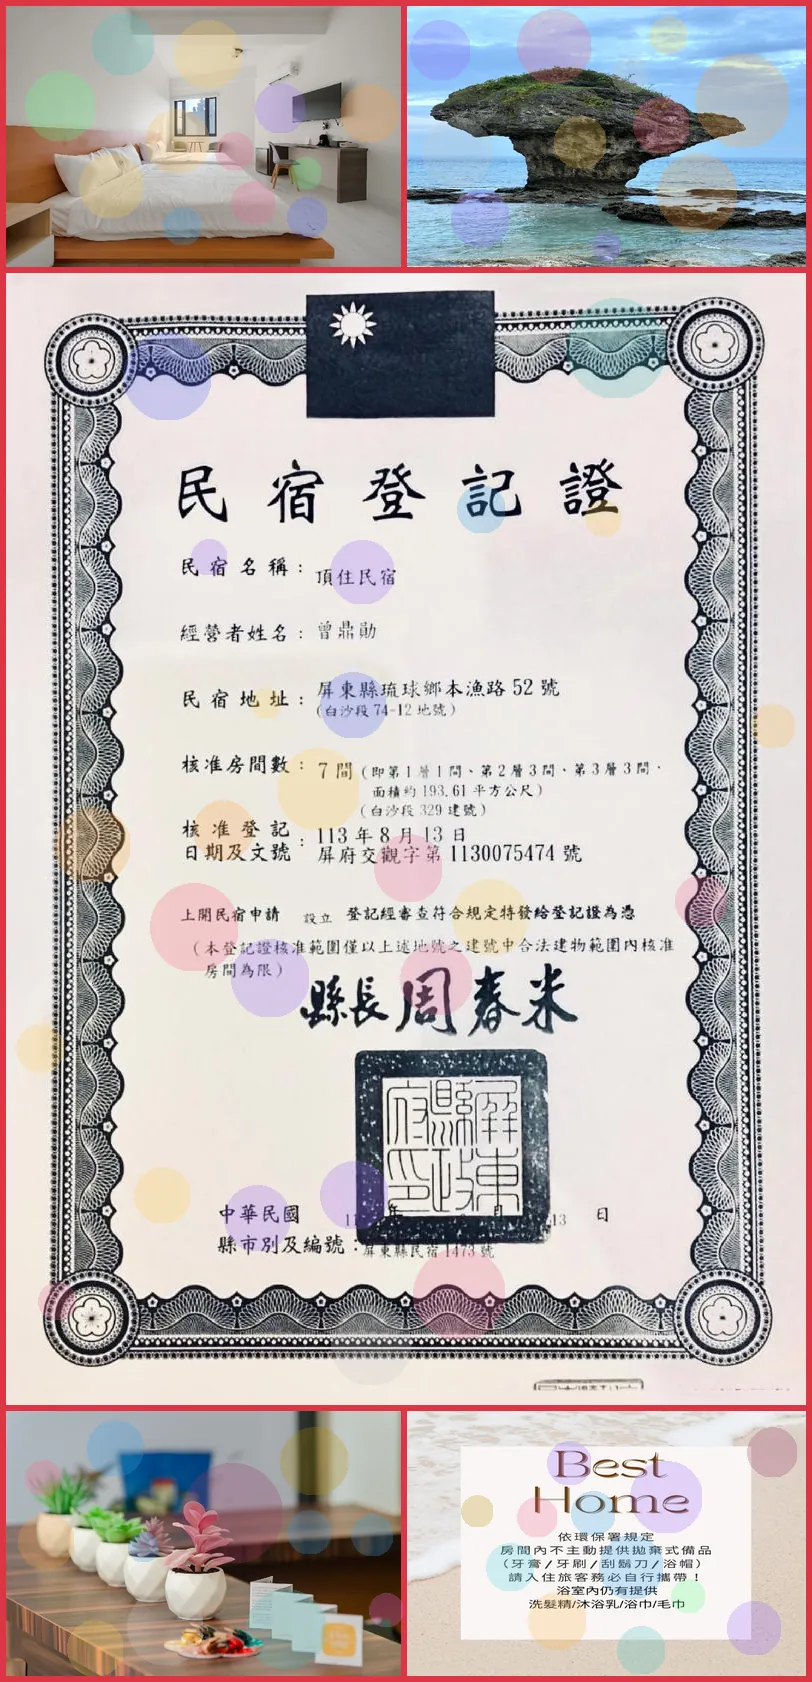 民宿登記證
民宿名稱：頂住民宿
經營者姓名：曾鼎勛
民宿地址：屏東縣琉球鄉本漁路 52 號
(白沙段 74-12 地號)
核准房間數：7 間 (即第 1 層 1 間、第 2 層 3 間、第 3 層 3 間，
面積約 193.61 平方公尺)
(白沙段 329 建號)
核准登記
日期及文號：113 年 8 月 13 日
屏府交觀字第 1130075474 號
上開民宿申請 設立 登記經審查符合規定特發給登記證為憑
(本登記證核准範圍僅以上述地號之建號中合法建物範圍內核准
房間為限)
縣長周春米
屏東縣政府印
中華民國 年 月 13 日
縣市別及編號：屏東縣民宿 1473 號
Best
Home
依環保署規定
房間內不主動提供拋棄式備品
(牙膏/牙刷/刮鬍刀/浴帽)
請入住旅客務必自行攜帶！
浴室內仍有提供
洗髮精/沐浴乳/浴巾/毛巾